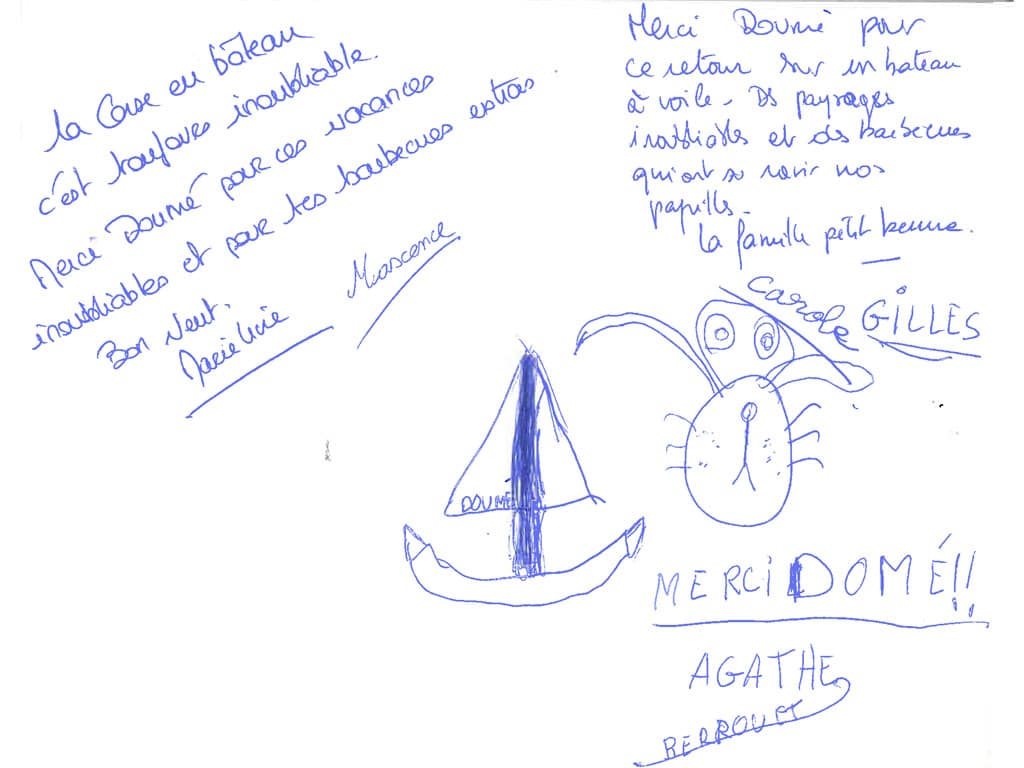 la Corse en bâteau
c'est toujours inoubliable.
Merci Doumé pour ces vacances
inoubliables et pour tes barbecues extras
Bon Vent.
Marie Livie
Mascence
Merci Doumé pour
ce retour sur un bateau
à voile - Ds paysages
inoubliables et des barbecues
qui ont su ravir nos
papilles -
La famille petit beurre.
Carole
GILLES
DOUMÉ
MERCI DOMÉ!!
AGATHE